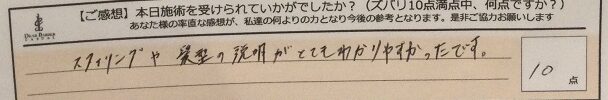 【ご感想】本日施術を受けられていかがでしたか？（ズバリ10点満点中、何点ですか？）
あなた様の率直な感想が、私達の何よりの力となり今後の参考となります。是非ご協力お願いします
スタイリングや髪型の説明がとてもわかりやすかったです。
10点